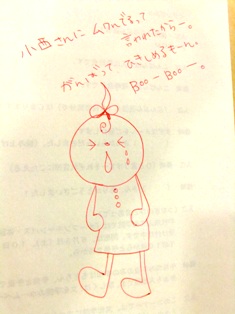 小西さんに ムクんでるって
言われたからー。
がんばって ひきしめるもーん。
Boo－Boo－。